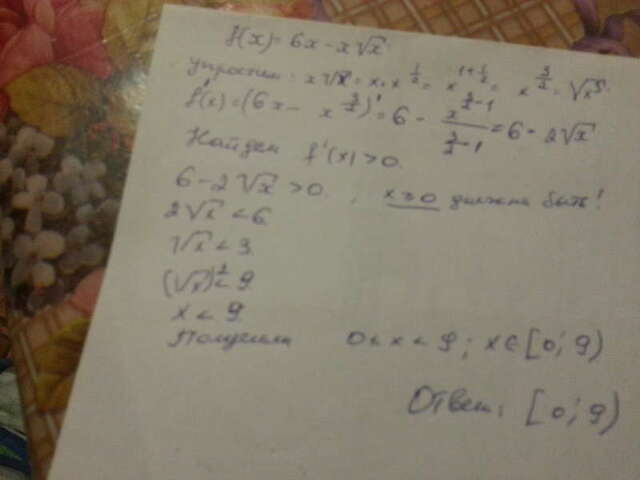 f(x) = 6x - x√x
упростим: x√x = x · x^(1/2) = x^(1+1/2) = x^(3/2) = √x³
f'(x) = (6x - x^(3/2))' = 6 - x^(3/2-1) / (3/2-1) = 6 - 2√x
Найдем f'(x) > 0
6 - 2√x > 0, x ≥ 0 должно быть!
2√x < 6
√x < 3
(√x)² < 9
x < 9
Получили 0 < x < 9; x ∈ [0; 9)
Ответ: [0; 9)